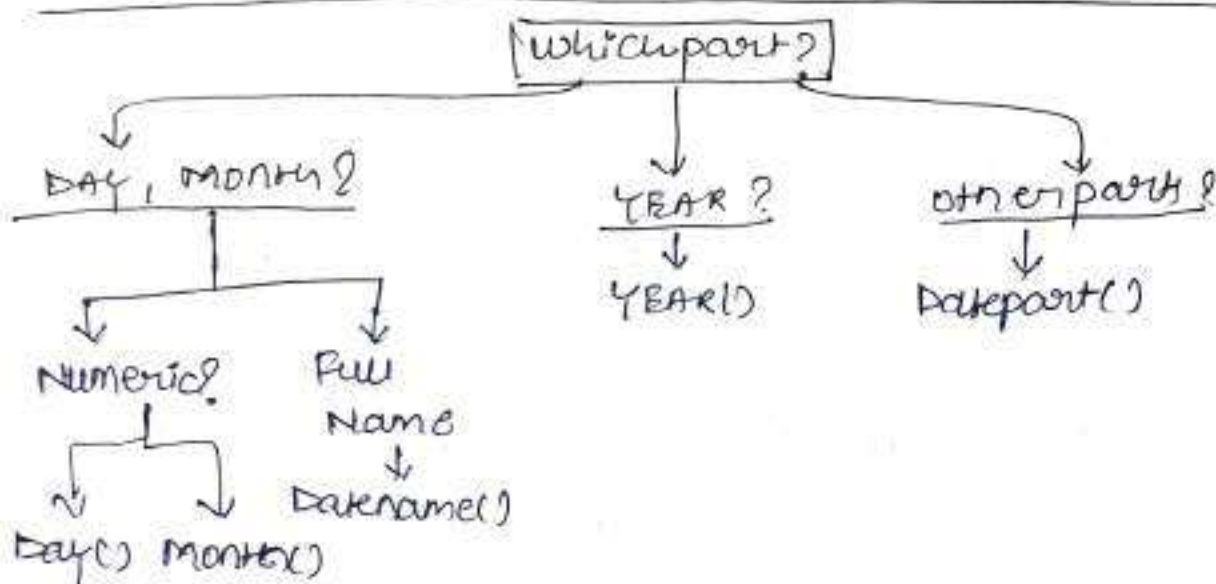 Which part?
DAY, MONTH? YEAR? other parts?
YEAR() Datepart()
Numeric? Full
Name
Datename()
Day() MONTH()